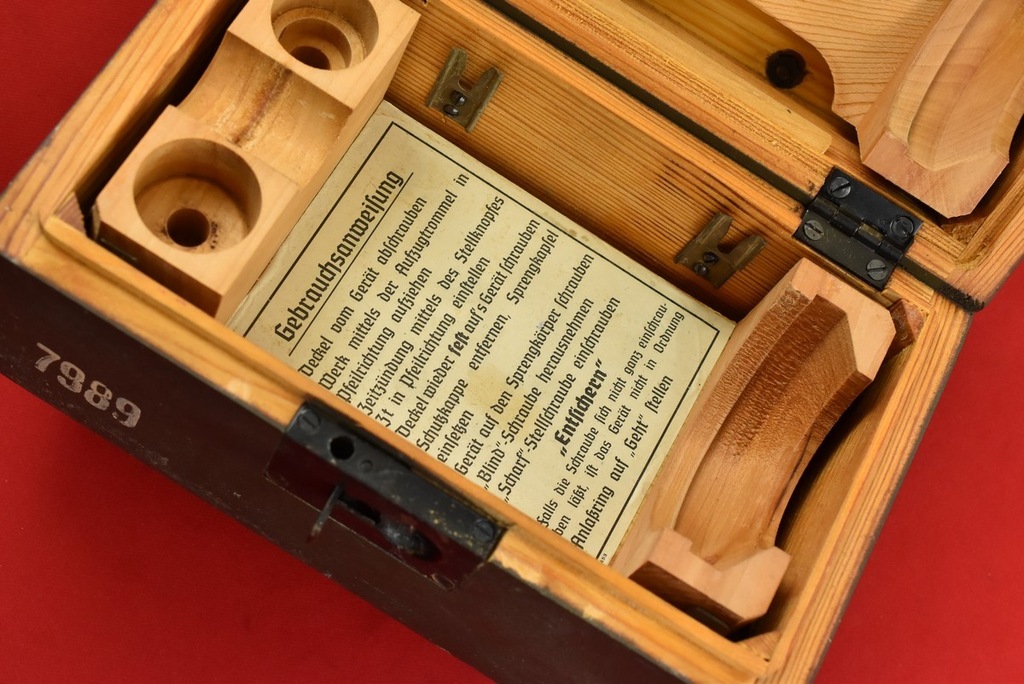 Gebrauchsanweisung
Deckel vom Gerät abschrauben
Werk mittels der Aufzugtrommel in
Pfeilrichtung aufziehen
Zeitzündung mittels des Stellknopfes
Zt in Pfeilrichtung einstellen
Deckel wieder fest auf's Gerät schrauben
Schutzkappe entfernen, Sprengkapsel
einsetzen
Gerät auf den Sprengkörper schrauben
„Blind"-Schraube herausnehmen
„Scharf"-Stellschraube einschrauben
„Entsichern"
Falls die Schraube sich nicht ganz einschrau-
ben läßt, ist das Gerät nicht in Ordnung
Anlaßring auf „Geht" stellen
7989